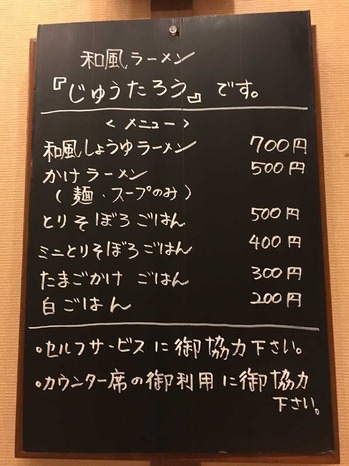 和風ラーメン
『じゅうたろう』です。
<メニュー>
和風しょうゆラーメン 700円
かけラーメン 500円
(麺、スープのみ)
とりそぼろごはん 500円
ミニとりそぼろごはん 400円
たまごかけ ごはん 300円
白ごはん 200円
・セルフサービスに御協力下さい。
・カウンター席の御利用に御協力
下さい。